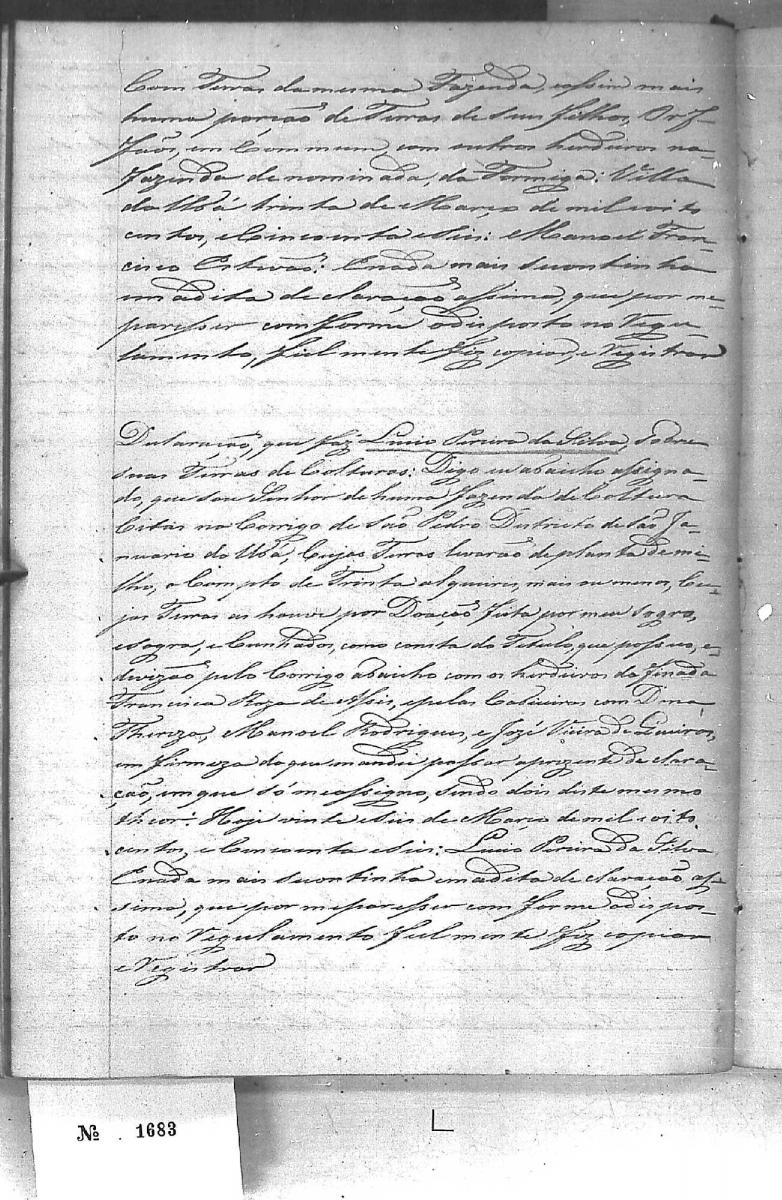 Com Terras da mesma Fazenda, e assim mais
huma porcaõ de Terras de seus filhos, Orf-
faõs, em Commum, com outros herdeiros na
fazenda denominada, da Formiga: Villa
do Ubá trinta de Março de mil oito
centos, e Cincoenta e Seis: Manoel Fran-
cisco Estevaõ: Enada mais secontinha
em adita declaração assima, que por me
paresser comforme odisposto no Regu-
lamento, fielmente fiz copiar, e Registrar
Declaração, que faz Lucio Pereira da Silva, sobre
suas Terras de Colturas: Digo eu abaicho assigna-
do, que sou Senhor de huma fazenda de Coltura
Citas no Corrigo de São Pedro Destricto de São Ja-
nuario do Ubá, Cujas Terras levarão de planta de mi-
lho, o Computo de Trinta alqueires, mais ou menos, Cu-
jas Terras as houve por Doação feita por meu Sogro,
e Sogra, e Cunhados, como consta do Titulo, que possuo, e
divizão pelo Corrigo abaicho com os herdeiros da finada
Francisca Roza de Assis, e pelas Caxueiras com Dona
Thereza, Manoel Rodrigues, e Jozé Vieira de Queiros,
em firmeza do que mandei passar aprezente declara-
ção, em que só me assigno, sendo dois deste mesmo
theor: Hoje vinte e seis de Março de mil oito
centos, e Cincoenta e Seis: Lucio Pereira da Silva
Enada mais secontinha em adita declaração as-
sima, que por me paresser comforme odispos-
to no Regulamento fielmente fiz copiar
e Registrar
№ 1683